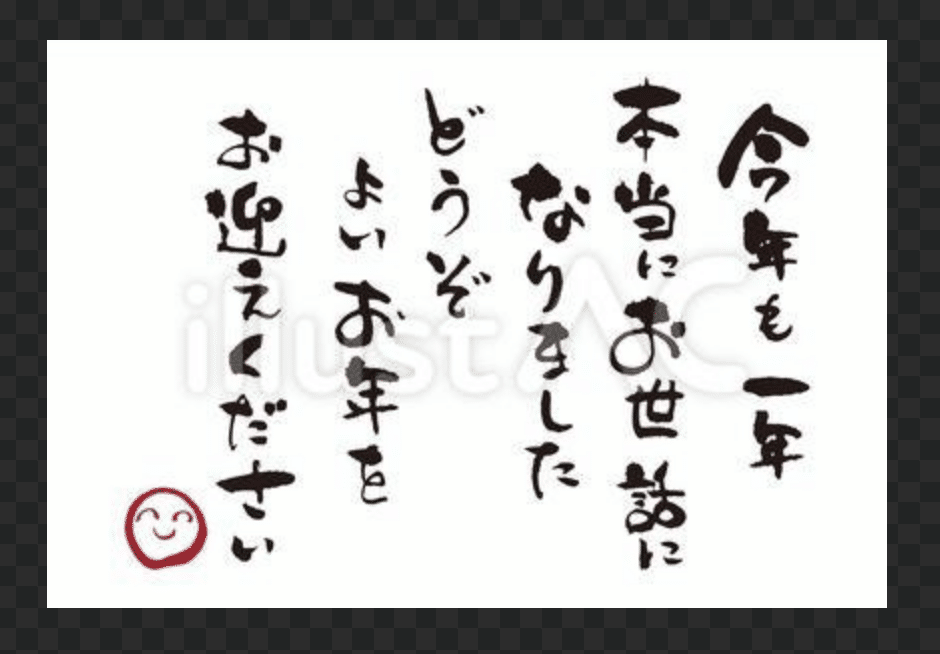 今年も一年
本当にお世話に
なりました
どうぞ
よいお年を
お迎えください
illustAC